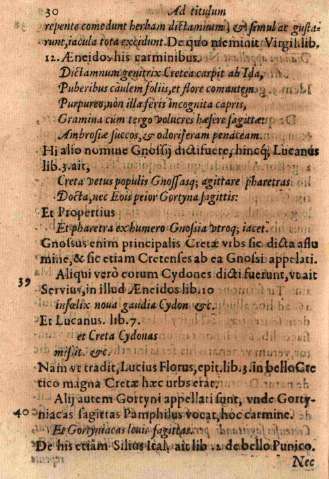 30 Ad titulum
repente comedunt herbam dictaminum) & simul ac gusta
runt, iacula tota excidunt. De quo meminit Virgil. lib.
12. Æneidos his carminibus.
Dictamnum genitrix Cretea carpit ab Ida,
Puberibus caulem foliis, et flore comantem
Purpureo, non illa feris incognita capris,
Gramina cùm tergo volucres hæsere sagittæ:
Ambrosiæ succos, & odoriferam penaceam.
Hi alio nomine Gnossij dicti fuere, hincq́; Lucanus
lib. 3. ait,
Creta vetus populis Gnossasq; agittare pharetras
Docta, nec Eois peior Gortyna sagittis:
Et Propertius
Et pharetra ex humero Gnosia vtroq; iacet.
Gnosus enim principalis Cretæ vrbs sic dicta à flu
mine, & sic etiam Cretenses ab ea Gnosii appelati.
39 Aliqui verò eorum Cydones dicti fuerunt, vt ait
Servius, in illud Æneidos lib. 10
infœlix noua gaudia Cydon &c.
Et Lucanus. lib. 7.
et Creta Cydonas
misit. &c.
Nam vt tradit, Lucius Florus, epit. lib. 3. in bello Cre
tico magna Cretæ hæc urbs erat.
Alij autem Gortyni appellati sunt, vnde Gorty-
40 niacas sagittas Pamphilus vocat, hoc carmine.
Et Gortyniacas louis sagittas.
De his etiam Silius Ital. ait lib. 12 de bello Punico.
Nec